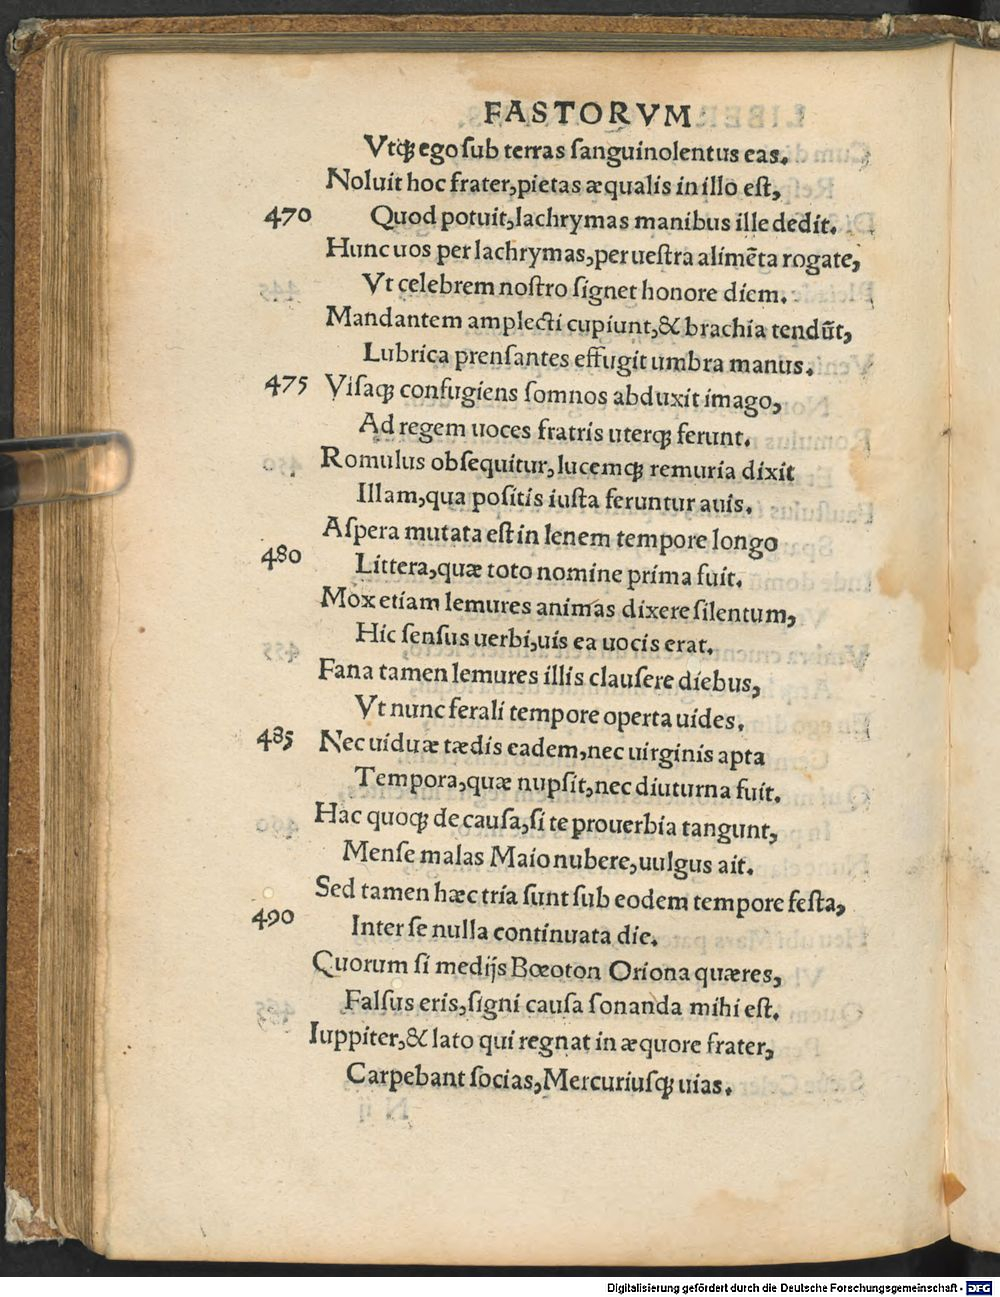 FASTORVM
Vtqꝫ ego ſub terras ſanguinolentus eas.
Noluit hoc frater, pietas æqualis in illo eſt,
470 Quod potuit, lachrymas manibus ille dedit.
Hunc uos per lachrymas, per ueſtra alimēta rogate,
Vt celebrem noſtro ſignet honore diem.
Mandantem amplecti cupiunt, & brachia tendūt,
Lubrica prenſantes effugit umbra manus.
475 Viſaqꝫ confugiens ſomnos abduxit imago,
Ad regem uoces fratris uterqꝫ ferunt.
Romulus obſequitur, lucemqꝫ remuria dixit
Illam, qua poſitis iuſta feruntur auis.
Aſpera mutata eſt in lenem tempore longo
480 Littera, quæ toto nomine prima fuit.
Mox etiam lemures animas dixere ſilentum,
Hic ſenſus uerbi, uis ea uocis erat.
Fana tamen lemures illis clauſere diebus,
Vt nunc ferali tempore operta uides.
485 Nec uiduæ tædis eadem, nec uirginis apta
Tempora, quæ nupſit, nec diuturna fuit.
Hac quoqꝫ de cauſa, ſi te prouerbia tangunt,
Menſe malas Maio nubere, uulgus ait.
Sed tamen hæc tria ſunt ſub eodem tempore feſta,
490 Inter ſe nulla continuata die.
Quorum ſi medijs Bœoton Oriona quæres,
Falſus eris, ſigni cauſa ſonanda mihi eſt.
Iuppiter, & lato qui regnat in æquore frater,
Carpebant ſocias, Mercuriuſqꝫ uias.
Digitalisierung gefördert durch die Deutsche Forschungsgemeinschaft - DFG